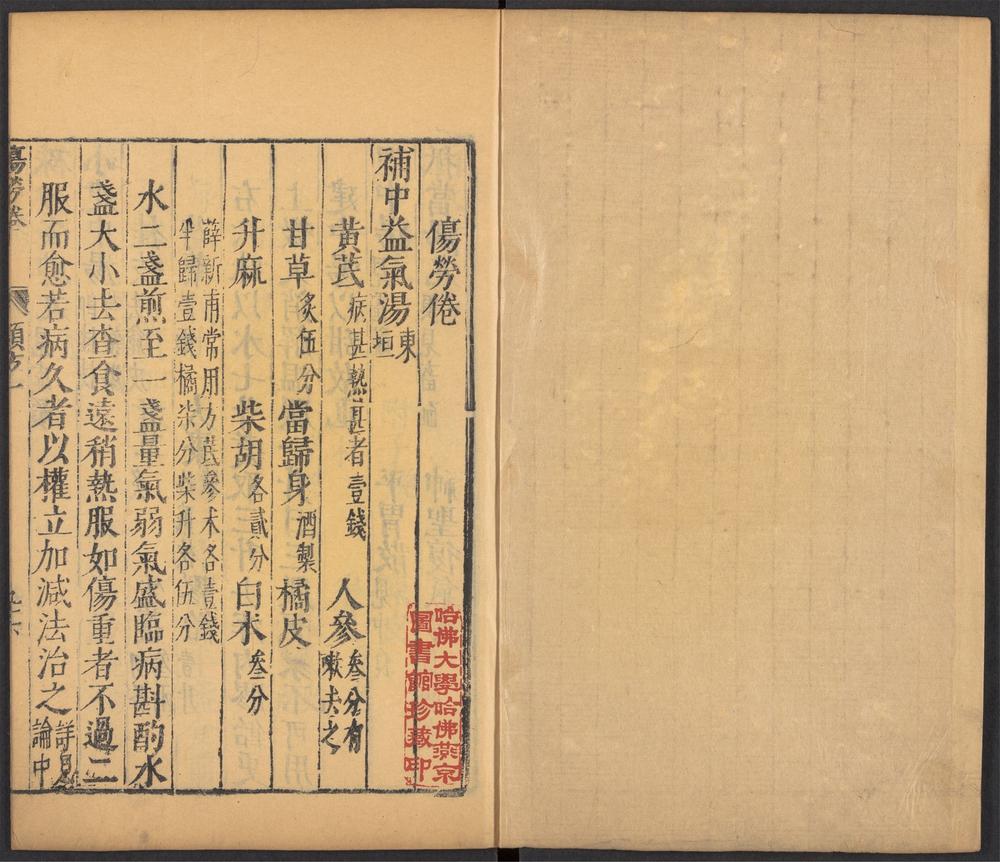 傷勞倦
補中益氣湯東垣
黃茋病甚熱甚者壹錢 人參叁分有嗽去之
甘草炙伍分 當歸身酒製 橘皮
升麻 柴胡各貳分 白朮叁分
薛新甫常用方茋參朮各壹錢
半歸壹錢橘柒分柴升各伍分
水二盞煎至一盞量氣弱氣盛臨病斟酌水
盞大小去查食遠稍熱服如傷重者不過二
服而愈若病久者以權立加減法治之詳見論中
傷勞卷
類方一
哈佛大學哈佛燕京
圖書館珍藏印